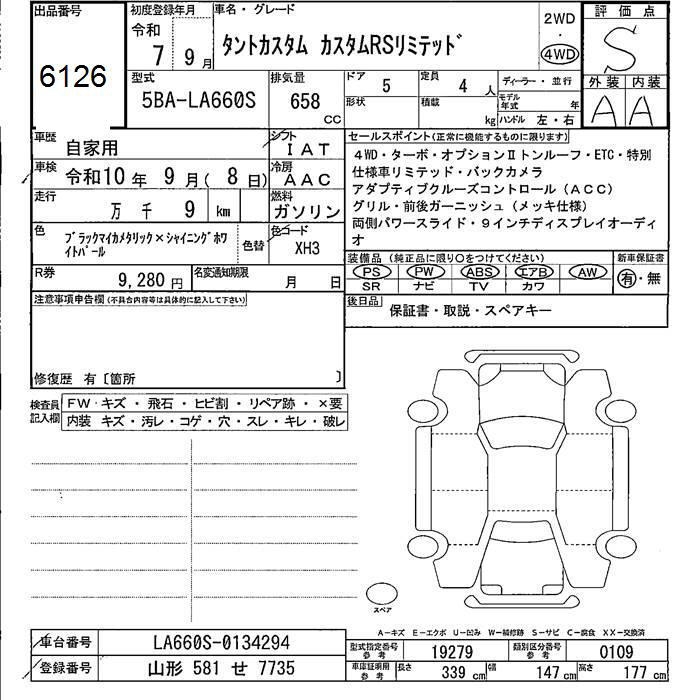 出品番号
6126
初度登録年月
令和
7 9 月
車名・グレード
タントカスタム カスタムRSリミテッド
2WD
・
4WD
評価点
S
外装 内装
A A
型式
5BA-LA660S
排気量
658
CC
ドア 5
形状
定員 4 人
積載 kg
ディーラー・並行
モデル年式 年
ハンドル 左・右
車歴 自家用
シフト IAT
車検 令和10年 9月( 8日)
冷房 AAC
走行 万 千 9 km
燃料 ガソリン
色 ブラックマイカメタリック×シャイニングホワイトパール
色替
色コード XH3
R券 9,280 円
名変通知期限 月 日
セールスポイント(正常に機能するものに限ります)
4WD・ターボ・オプションⅡトンルーフ・ETC・特別
仕様車リミテッド・バックカメラ
アダプティブクルーズコントロール(ACC)
グリル・前後ガーニッシュ(メッキ仕様)
両側パワースライド・9インチディスプレイオーディ
オ
装備品 (純正品に限り〇をつけてください)
PS PW ABS エアB AW
SR ナビ TV カワ
新車保証書
有・無
後日品 保証書・取説・スペアキー
注意事項申告欄(不具合内容等は具体的に記入して下さい)
修復歴 有〔箇所 〕
検査員記入欄
FW キズ ・ 飛石 ・ ヒビ割 ・ リペア跡 ・ ×要
内装 キズ・汚レ・コゲ・穴・スレ・キレ・破レ
スペア
A－キズ E－エクボ U－凹み W－補修跡 S－サビ C－腐食 XX－交換済
車台番号 LA660S-0134294
登録番号 山形 581 せ 7735
型式指定番号参考 19279
類別区分番号参考 0109
車庫証明用参考 長さ 339 cm 幅 147 cm 高さ 177 cm